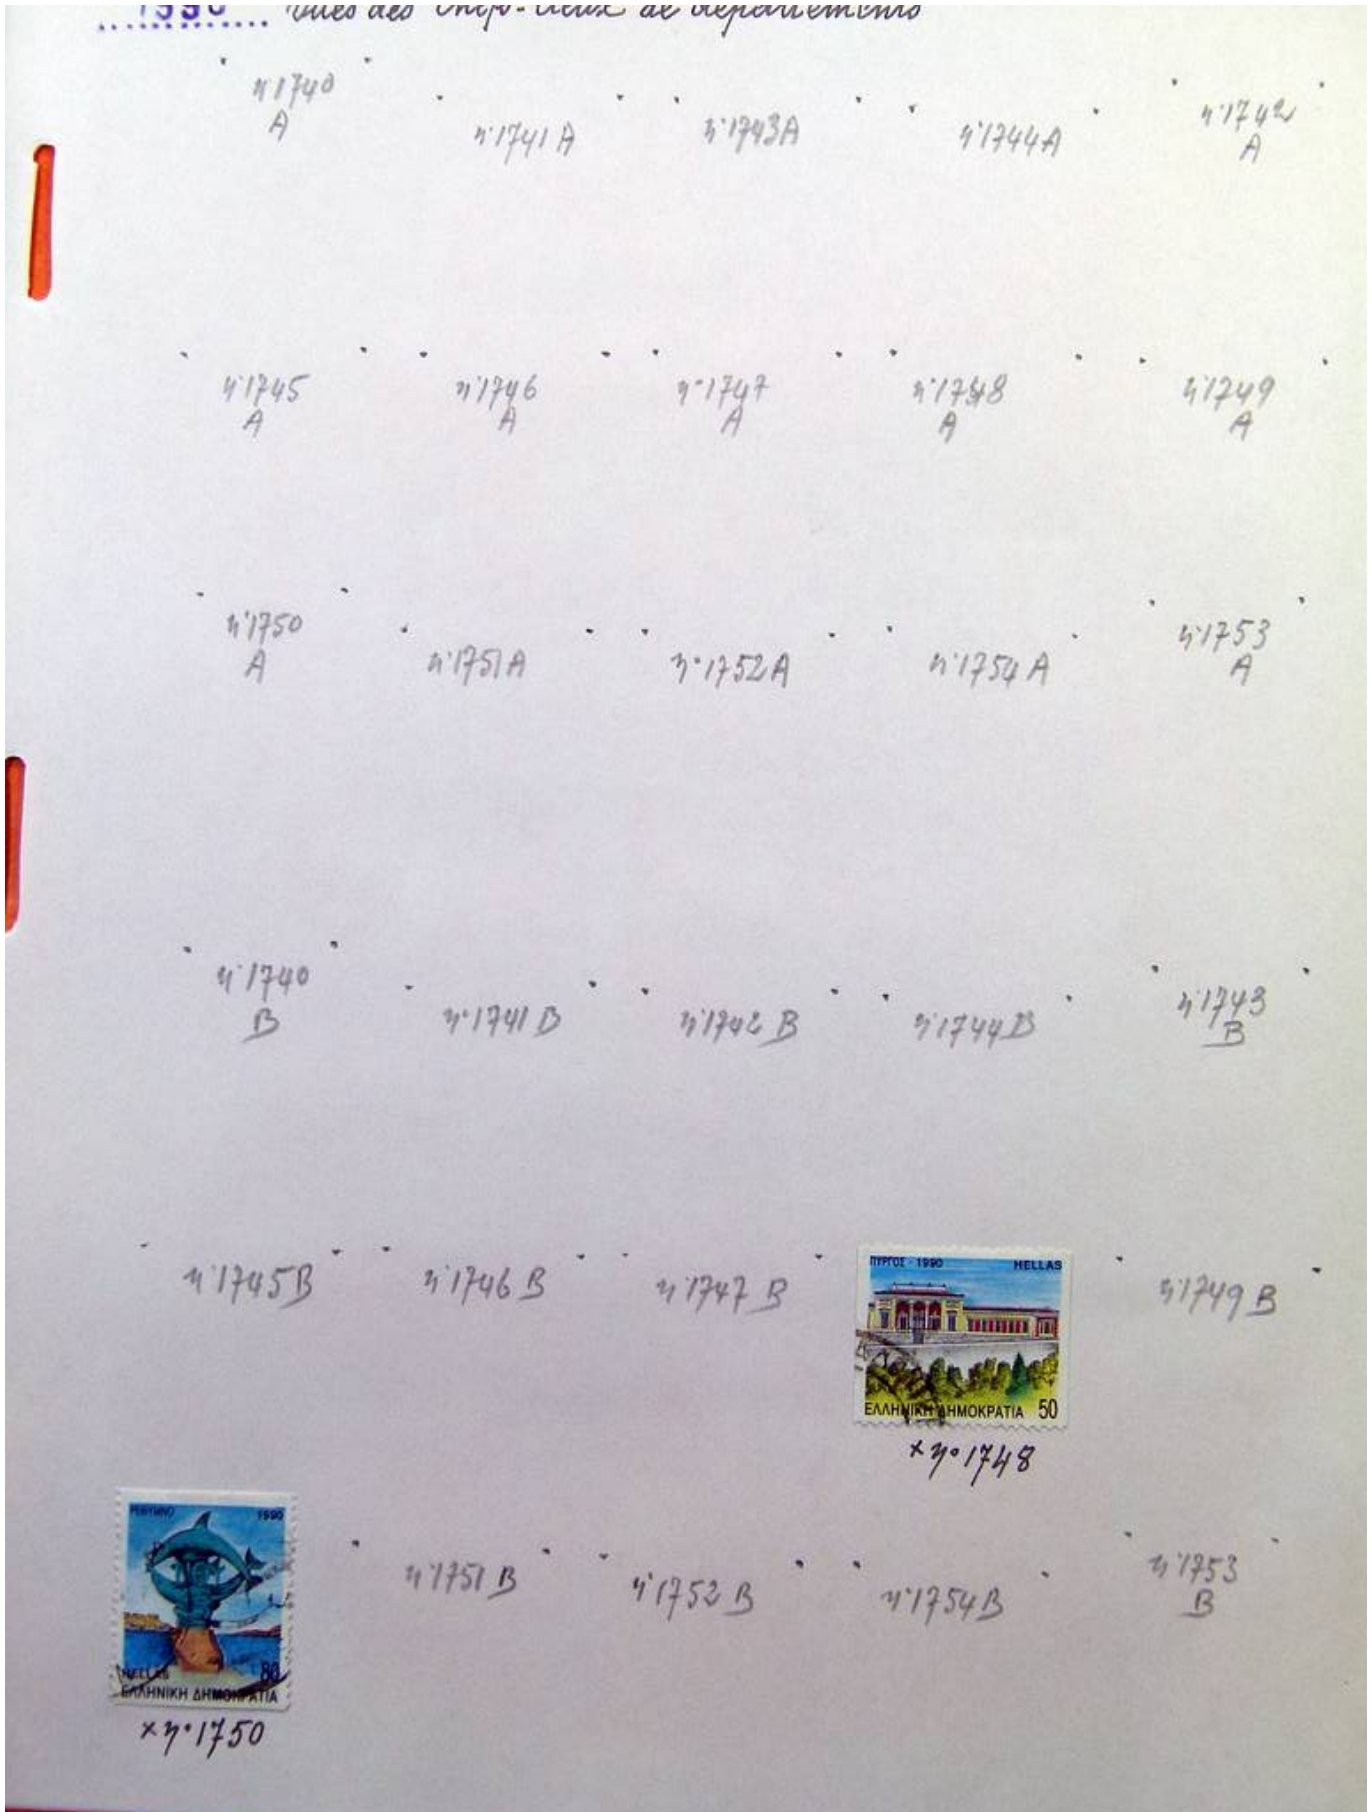 1990 Vues des chefs-lieux de départements
n°1740
A
n°1741 A
n°1743A
n°1744A
n°1742
A
n°1745
A
n°1746
A
n°1747
A
n°1748
A
n°1749
A
n°1750
A
n°1751 A
n°1752 A
n°1754 A
n°1753
A
n°1740
B
n°1741 B
n°1742 B
n°1744 B
n°1743
B
n°1745 B
n°1746 B
n°1747 B
ΠΥΡΓΟΣ - 1990 HELLAS
ΕΛΛΗΝΙΚΗ ΔΗΜΟΚΡΑΤΙΑ 50
x n°1748
n°1749 B
ΡΕΘΥΜΝΟ 1990
HELLAS 80
ΕΛΛΗΝΙΚΗ ΔΗΜΟΚΡΑΤΙΑ
x n°1750
n°1751 B
n°1752 B
n°1754 B
n°1753
B